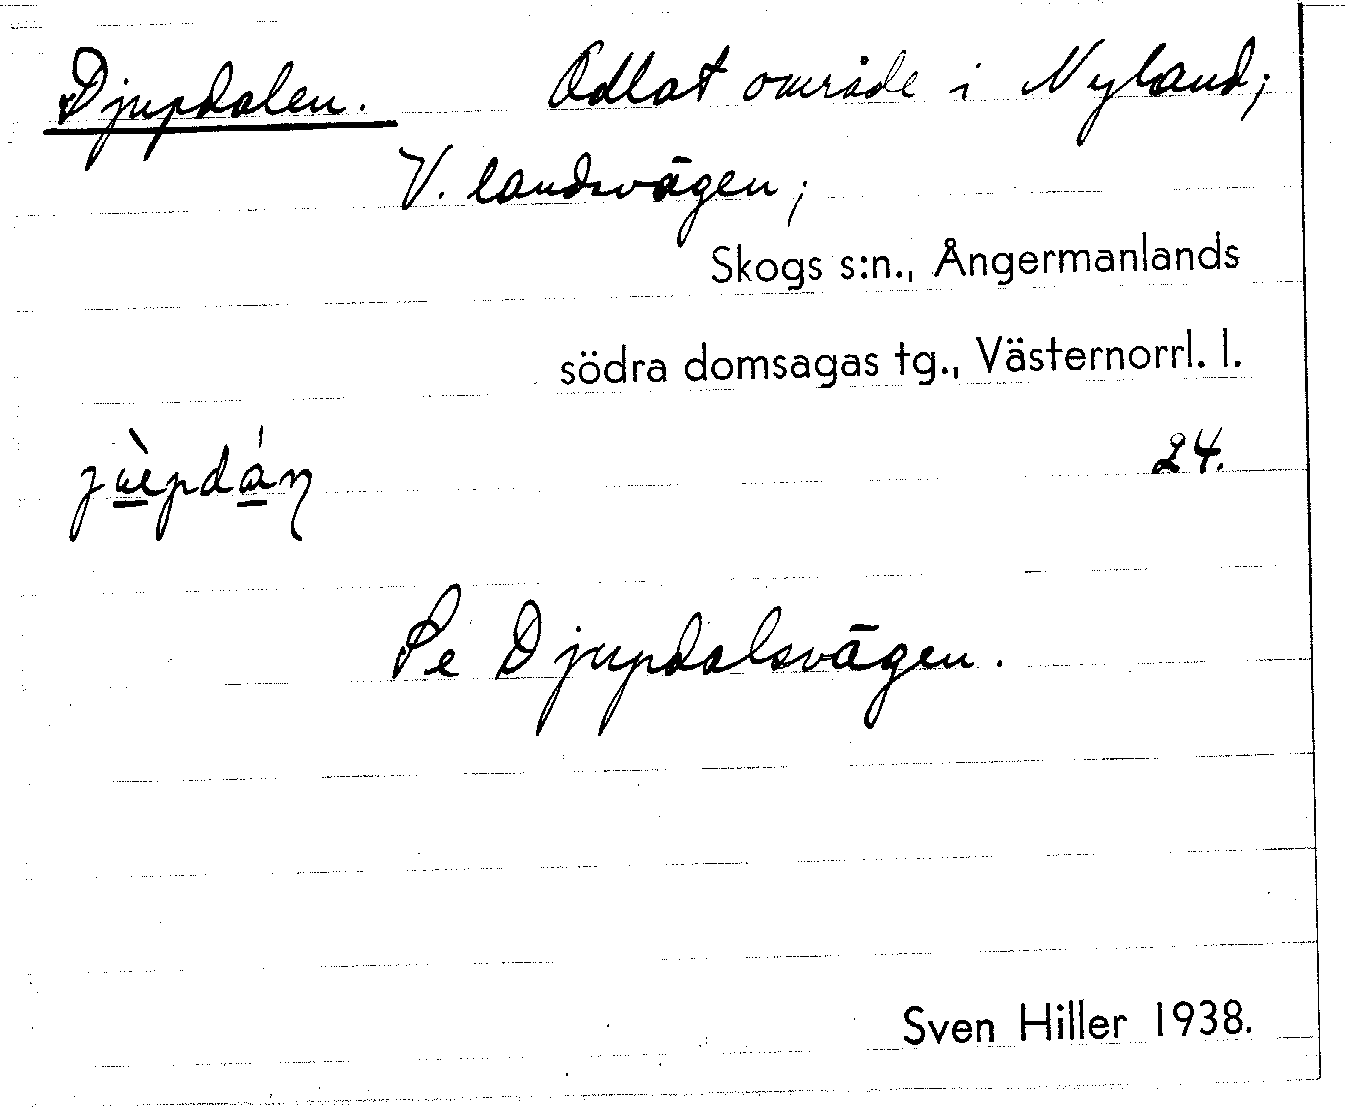 Djupdalen. Odlat område i Nyland;
V. landsvägen;
Skogs s:n., Ångermanlands
södra domsagas tg., Västernorrl. l.
24.
Se Djupdalsvägen.
Sven Hiller 1938.